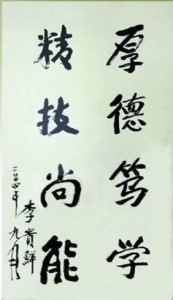 厚德笃学
精技尚能
二〇〇四年
李贵鲜 九月